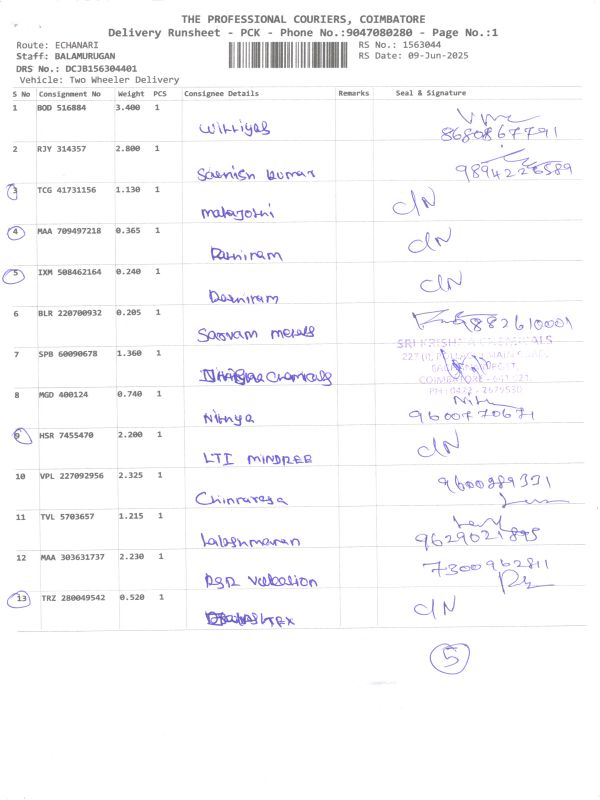 THE PROFESSIONAL COURIERS, COIMBATORE
Delivery Runsheet - PCK - Phone No.:9047080280 - Page No.:1
Route: ECHANARI RS No.: 1563044
Staff: BALAMURUGAN RS Date: 09-Jun-2025
DRS No.: DCJB156304401
Vehicle: Two Wheeler Delivery
S No Consignment No Weight PCS Consignee Details Remarks Seal & Signature
1 BOD 516884 3.400 1
8680867791
2 RJY 314357 2.800 1
Kumar 9894226589
3 TCG 41731156 1.130 1
C/N
4 MAA 709497218 0.365 1
C/N
5 IXM 508462164 0.240 1
C/N
6 BLR 220700932 0.205 1
9882610001
7 SPB 60090678 1.360 1
SRI KRISHNA CHEMICALS
Chemicals
8 MGD 400124 0.740 1
Nithya 9600770671
9 HSR 7455470 2.200 1
LTI MINDREE C/N
10 VPL 227092956 2.325 1
9600889331
11 TVL 5703657 1.215 1
9629021895
12 MAA 303631737 2.230 1
7300962811
13 TRZ 280049542 0.520 1
C/N
5